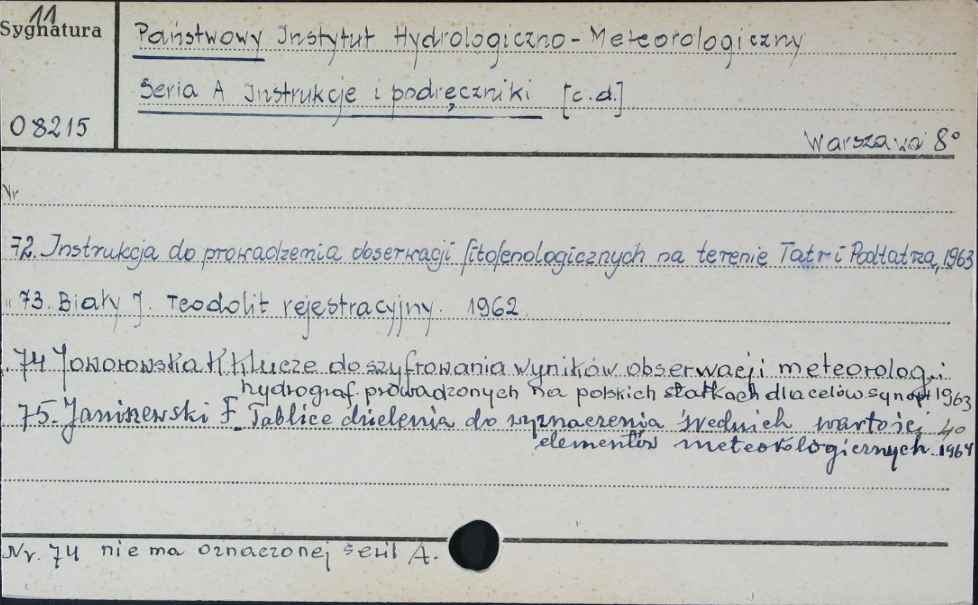 11
Sygnatura
08215
Państwowy Instytut Hydrologiczno-Meteorologiczny
Seria A Instrukcje i podręczniki [c.d.]
Warszawa 8°
Nr
72. Instrukcja do prowadzenia obserwacji fitofenologicznych na terenie Tatr i Podtatrza, 1963
" 73. Biały J. Teodolit rejestracyjny. 1962
74 Joworowska K Klucze do szyfrowania wyników obserwacji meteorolog. i
hydrograf. prowadzonych na polskich statkach dla celów synopt 1963
75. Janiszewski F. Tablice dzielenia do wyznaczenia średnich wartości 40
elementów meteorologicznych. 1964
Nr. 74 nie ma oznaczonej serii A.